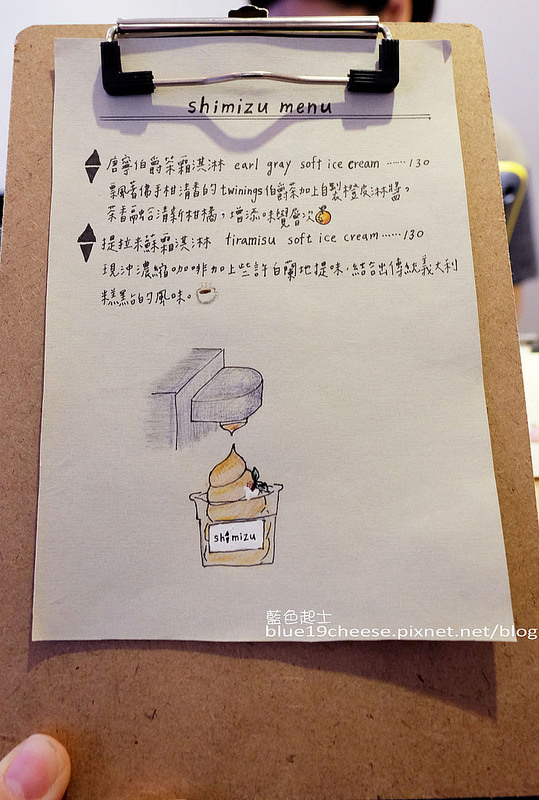 shimizu menu
唐寧伯爵茶霜淇淋 earl gray soft ice cream ……130
飄著佛手柑清香的twinings伯爵茶加上自製橙皮淋醬，
茶香融合清新柑橘，增添味覺層次
提拉米蘇霜淇淋 tiramisu soft ice cream ……130
現沖濃縮咖啡加上些許白蘭地提味，結合出傳統義大利
糕點的風味。
shimizu
藍色起士
blue19cheese.pixnet.net/blog